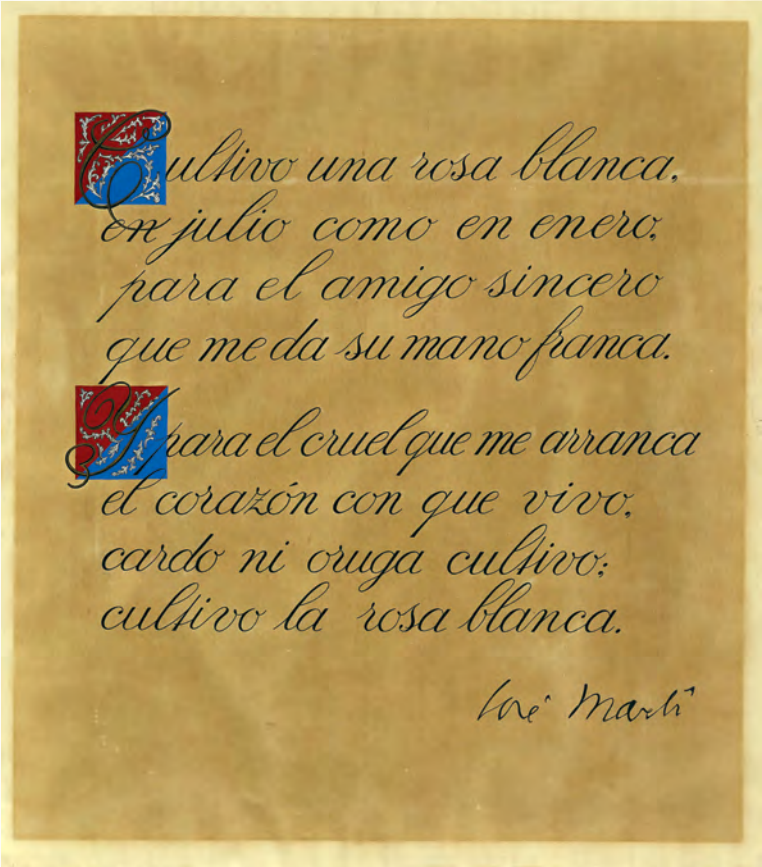 Cultivo una rosa blanca,
en julio como en enero,
para el amigo sincero
que me da su mano franca.
Y para el cruel que me arranca
el corazón con que vivo,
cardo ni oruga cultivo;
cultivo la rosa blanca.
José Martí